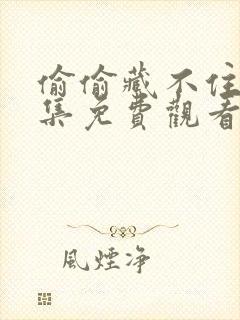 偷偷藏不住
集免費觀看
風煙净